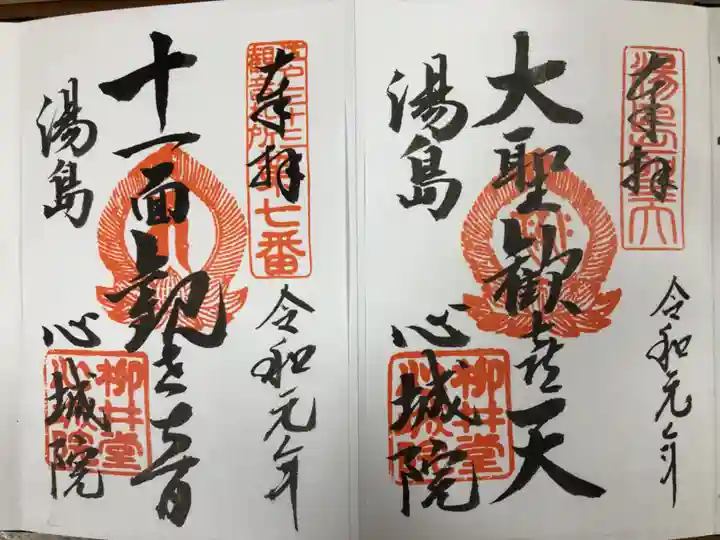 奉拝
湯島聖天
大聖歓喜天
湯島
心城院
柳井堂
令和元年
奉拝
第七番
十一面観世音
湯島
心城院
柳井堂
令和元年